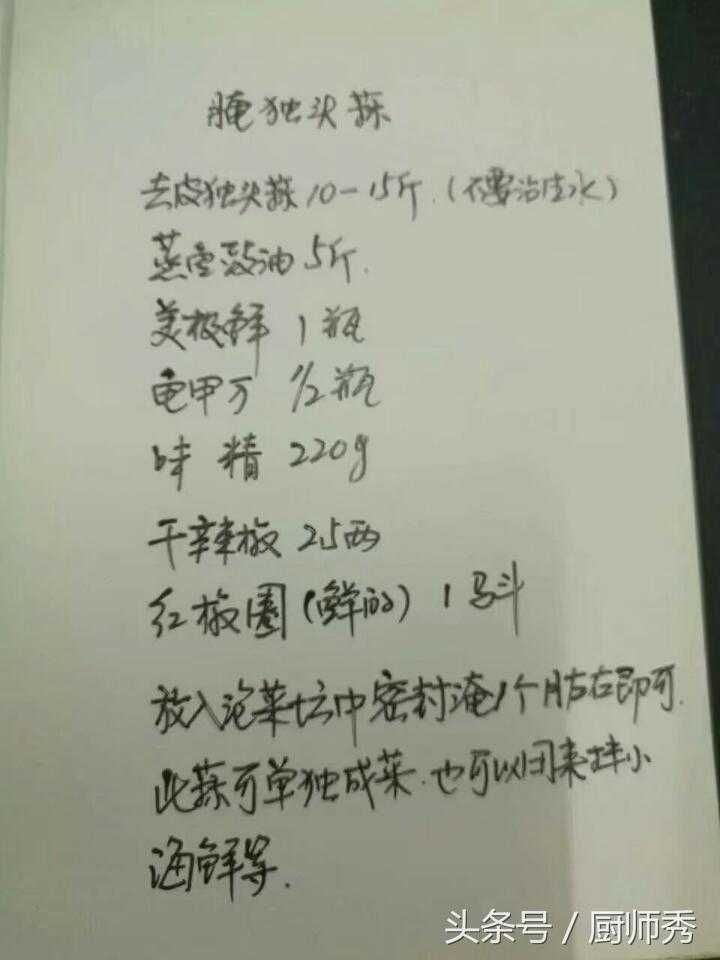 腌独头蒜
去皮独头蒜10-15斤.(不要沾生水)
蒸鱼豉油5斤.
美极鲜 1瓶
龟甲万 1/2瓶
味精 220g
干辣椒 2.5两
红椒圈(鲜的) 1马斗
放入泡菜坛中密封淹1个月左右即可.
此蒜可单独成菜.也可以用来拌小
海鲜等.
头条号 / 厨师秀